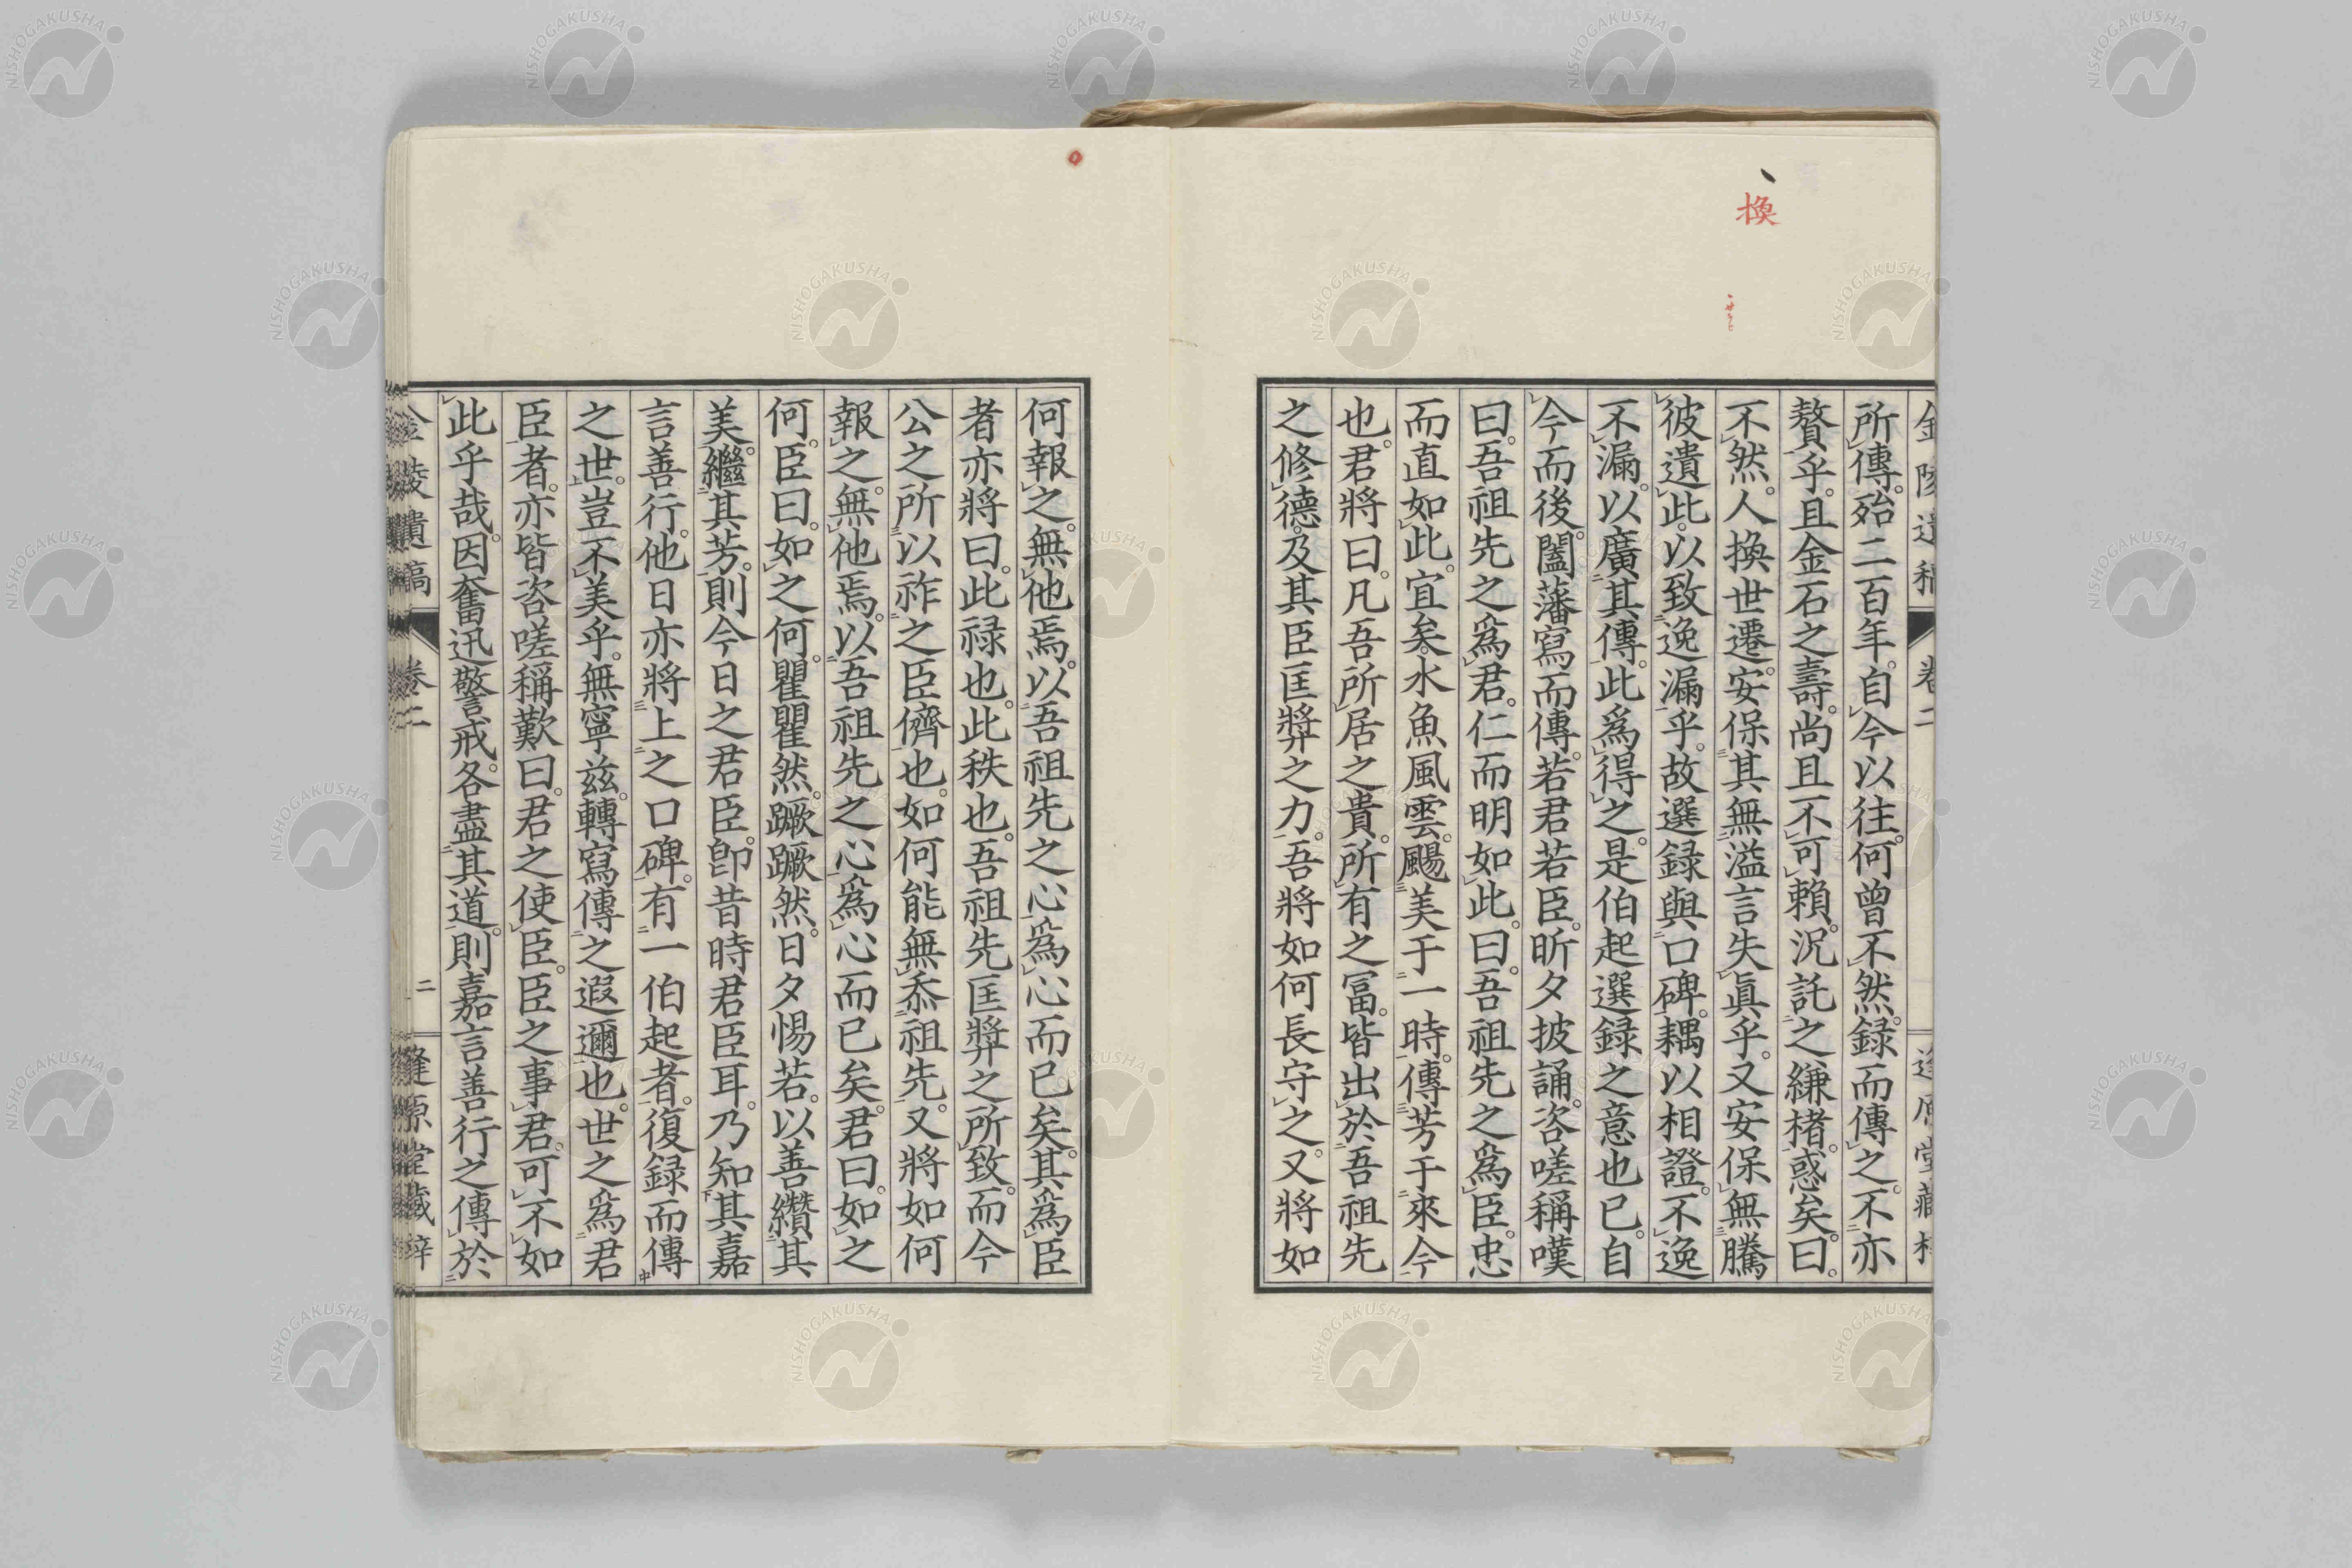 換
金陵遺稿 卷二 逢原堂藏梓
所傳。殆二百年。自今以往。何曾不然。録而傳之。不亦
贅乎。且金石之壽。尚且不可賴。況託之縑楮。惑矣。曰。
不然。人換世遷。安保其無溢言失眞乎。又安保無騰
彼遺此。以致逸漏乎。故選録與口碑。耦以相證。不逸
不漏。以廣其傳。此爲得之。是伯起選録之意也已。自
今而後。闔藩寫而傳。若君若臣。昕夕披誦。咨嗟稱嘆
曰。吾祖先之爲君。仁而明如此。曰。吾祖先之爲臣。忠
而直如此。宜矣。水魚風雲。颺美于一時。傳芳于來今
也。君將曰。凡吾所居之貴。所有之冨。皆出於吾祖先
之修德。及其臣匡弼之力。吾將如何長守之。又將如
何報之。無他焉。以吾祖先之心爲心而已矣。其爲臣
者亦將曰。此禄也。此秩也。吾祖先匡弼之所致。而今
公之所以祚之臣儕也。如何能無忝祖先。又將如何
報之。無他焉。以吾祖先之心爲心而已矣。君曰。如之
何。臣曰。如之何。瞿瞿然。蹶蹶然。日夕惕若。以善纘其
美。繼其芳。則今日之君臣。卽昔時君臣耳。乃知其嘉
言善行。他日亦將上之口碑。有一伯起者。復録而傳
之世。豈不美乎。無寧茲。轉寫傳之遐邇也。世之爲君
臣者。亦皆咨嗟稱歎曰。君之使臣。臣之事君。可不如
此乎哉。因奮迅警戒。各盡其道。則嘉言善行之傳於
金陵遺稿 卷二 二 逢原堂藏梓